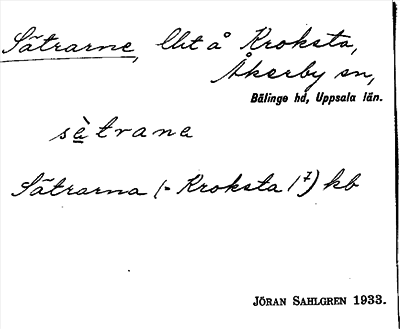 Sätrarne, lht å Kroksta,
Åkerby sn,
Bälinge hd, Uppsala län.
sètrana
Sätrarna (- Kroksta 1⁷) kb
JÖRAN SAHLGREN 1933.